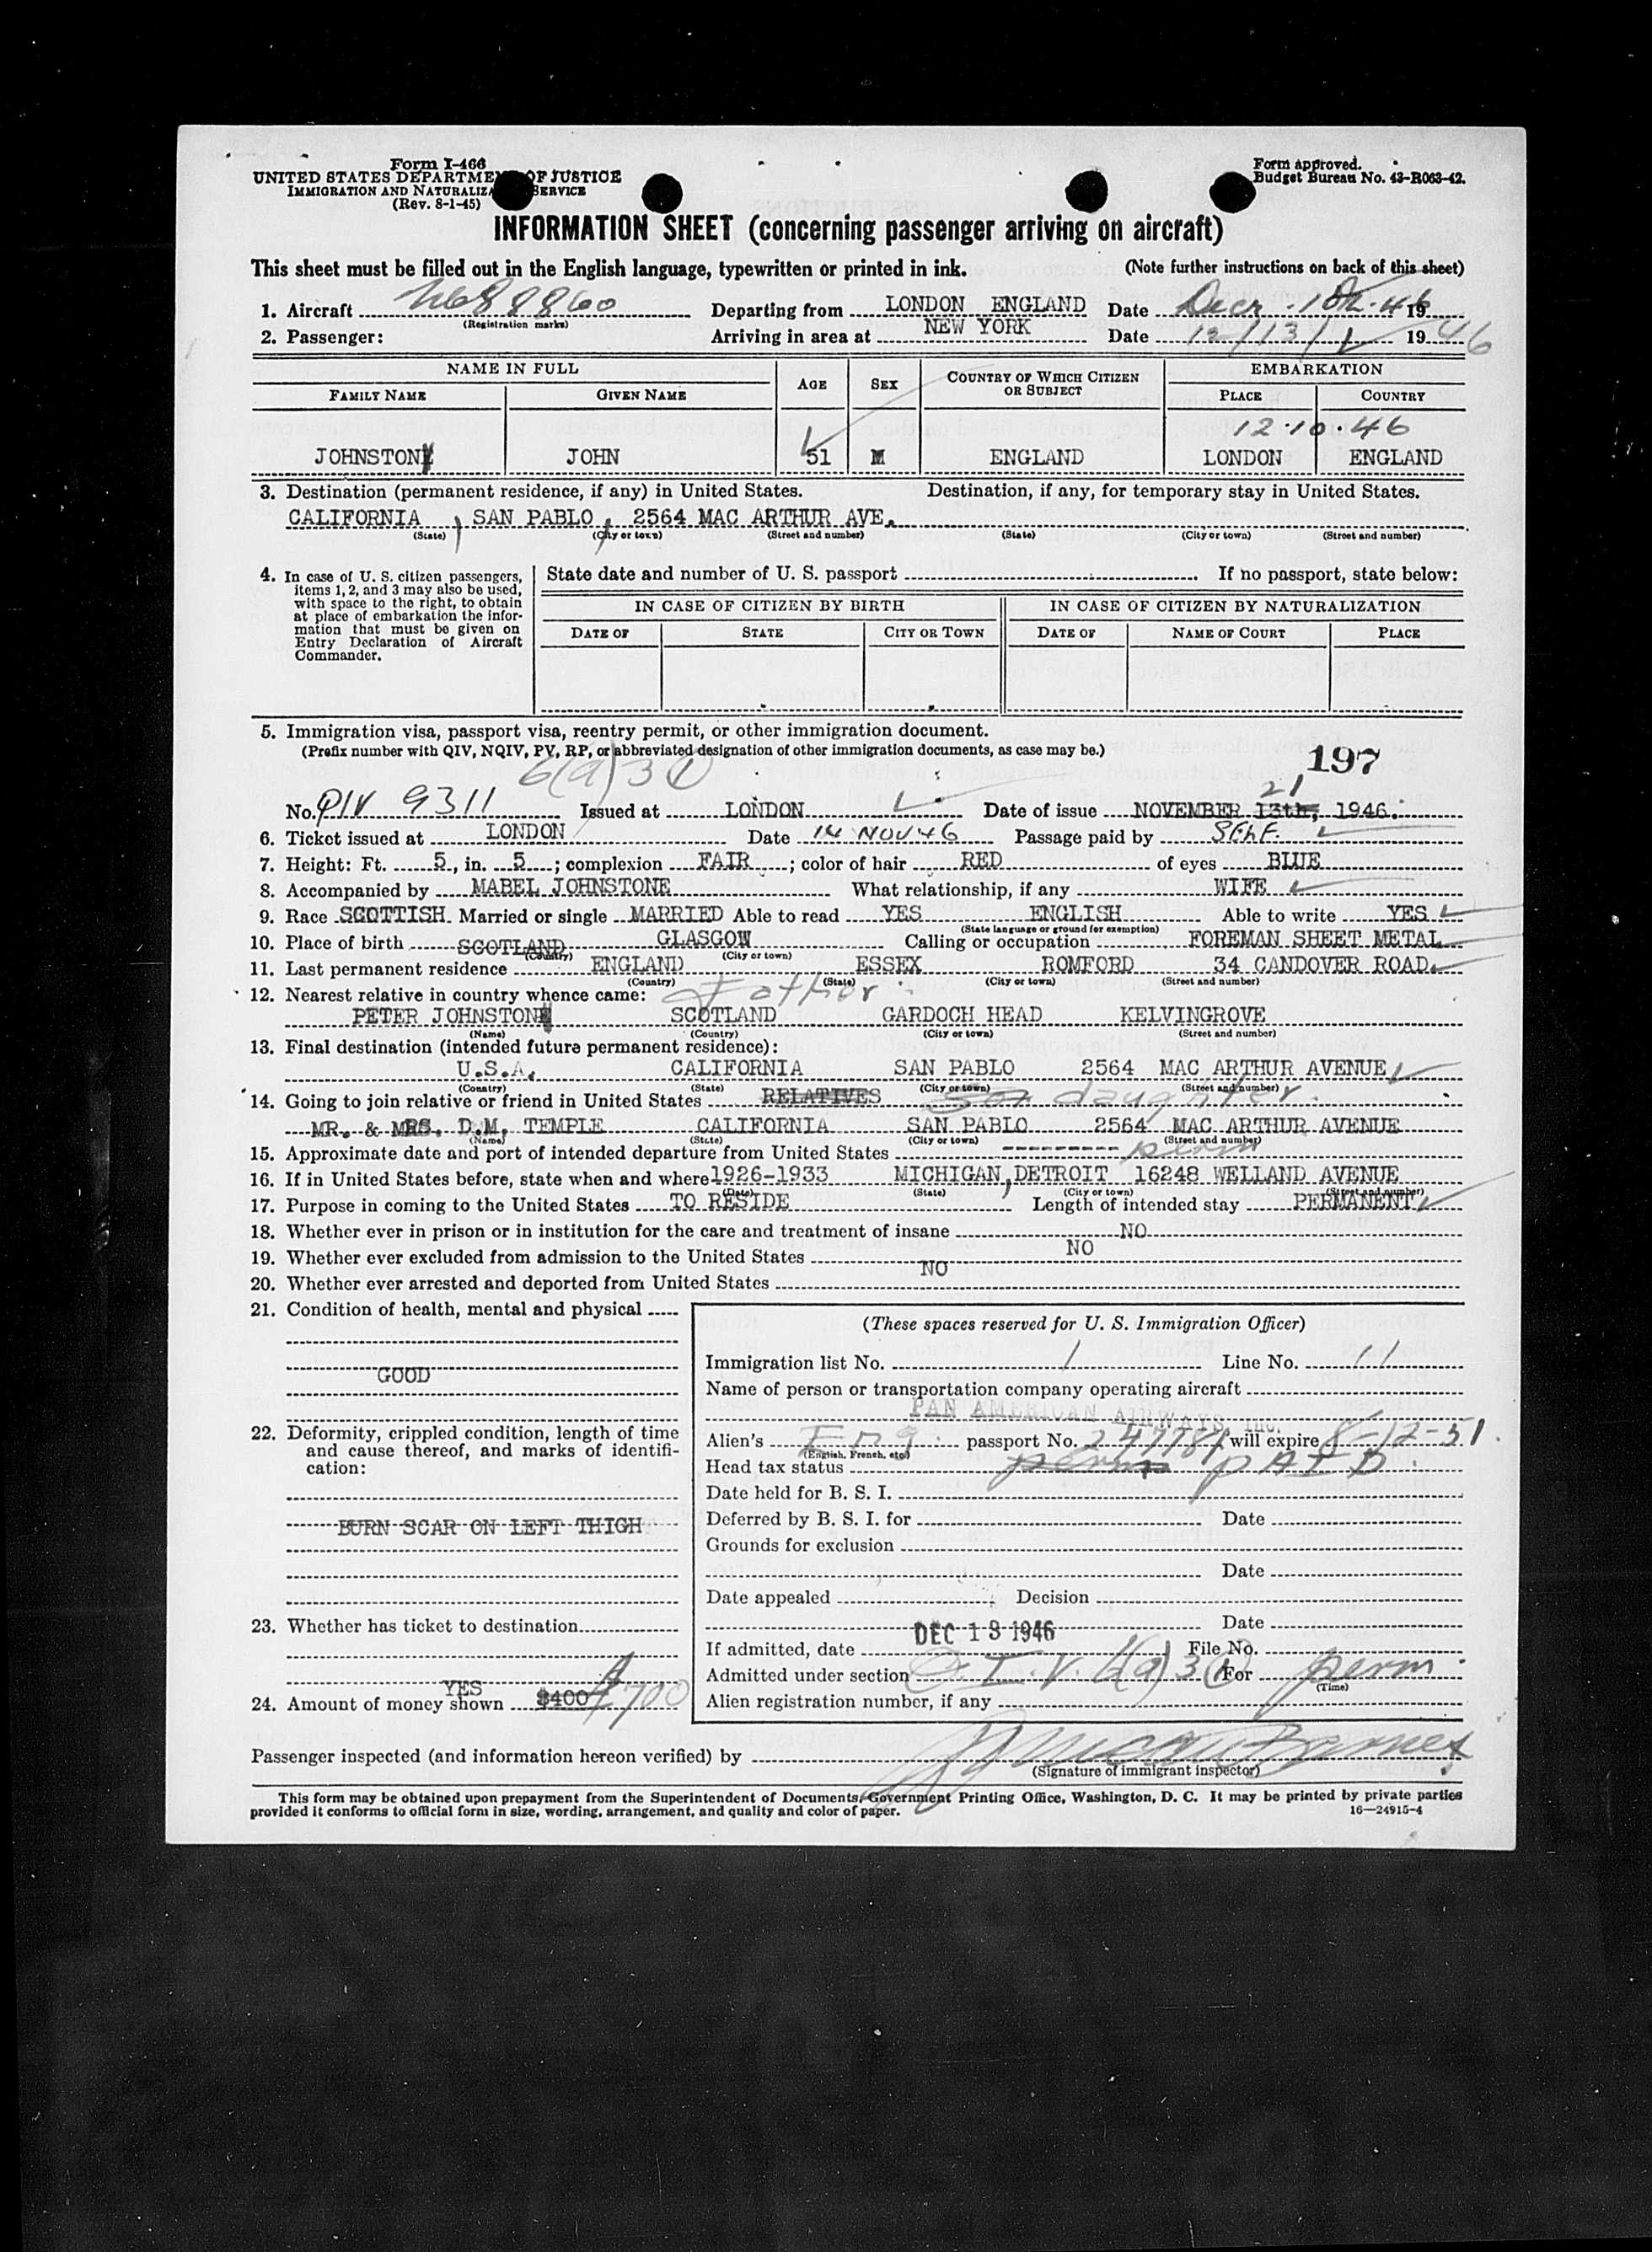 Form I-466
UNITED STATES DEPARTMENT OF JUSTICE
IMMIGRATION AND NATURALIZATION SERVICE
(Rev. 8-1-45)
Form approved.
Budget Bureau No. 43-R063-42.
INFORMATION SHEET (concerning passenger arriving on aircraft)
This sheet must be filled out in the English language, typewritten or printed in ink. (Note further instructions on back of this sheet)
1. Aircraft N688860 Departing from LONDON ENGLAND Date Decr. 19
(Registration marks)
2. Passenger: Arriving in area at NEW YORK Date 12/13/ 1946
NAME IN FULL AGE SEX COUNTRY OF WHICH CITIZEN OR SUBJECT EMBARKATION
FAMILY NAME GIVEN NAME PLACE COUNTRY
12.10.46
JOHNSTON JOHN 51 M ENGLAND LONDON ENGLAND
3. Destination (permanent residence, if any) in United States. Destination, if any, for temporary stay in United States.
CALIFORNIA, SAN PABLO, 2564 MAC ARTHUR AVE.
(State) (City or town) (Street and number) (State) (City or town) (Street and number)
4. In case of U. S. citizen passengers, items 1, 2, and 3 may also be used, with space to the right, to obtain at place of embarkation the information that must be given on Entry Declaration of Aircraft Commander.
State date and number of U. S. passport If no passport, state below:
IN CASE OF CITIZEN BY BIRTH IN CASE OF CITIZEN BY NATURALIZATION
DATE OF STATE CITY OR TOWN DATE OF NAME OF COURT PLACE
5. Immigration visa, passport visa, reentry permit, or other immigration document.
(Prefix number with QIV, NQIV, PV, RP, or abbreviated designation of other immigration documents, as case may be.)
197
6(a)3(1)
21
No. QIV 9311 Issued at LONDON Date of issue NOVEMBER 13th, 1946.
6. Ticket issued at LONDON Date 14 NOV 46 Passage paid by SELF.
7. Height: Ft. 5, in. 5; complexion FAIR; color of hair RED of eyes BLUE
8. Accompanied by MABEL JOHNSTONE What relationship, if any WIFE
9. Race SCOTTISH Married or single MARRIED Able to read YES ENGLISH Able to write YES
(State language or ground for exemption)
10. Place of birth SCOTLAND GLASGOW Calling or occupation FOREMAN SHEET METAL
(Country) (City or town)
11. Last permanent residence ENGLAND ESSEX ROMFORD 34 CANDOVER ROAD.
(Country) (State) (City or town) (Street and number)
12. Nearest relative in country whence came: Father
PETER JOHNSTON SCOTLAND GARDOCH HEAD KELVINGROVE
(Name) (Country) (City or town) (Street and number)
13. Final destination (intended future permanent residence):
U.S.A. CALIFORNIA SAN PABLO 2564 MAC ARTHUR AVENUE
(Country) (State) (City or town) (Street and number)
14. Going to join relative or friend in United States RELATIVES daughter.
MR. & MRS. D.M. TEMPLE CALIFORNIA SAN PABLO 2564 MAC ARTHUR AVENUE
(Name) (State) (City or town) (Street and number)
15. Approximate date and port of intended departure from United States --------- perm
16. If in United States before, state when and where 1926-1933 MICHIGAN, DETROIT 16248 WELLAND AVENUE
(Date) (State) (City or town) (Street and number)
17. Purpose in coming to the United States TO RESIDE Length of intended stay PERMANENT
18. Whether ever in prison or in institution for the care and treatment of insane NO
19. Whether ever excluded from admission to the United States NO
20. Whether ever arrested and deported from United States NO
21. Condition of health, mental and physical
GOOD
22. Deformity, crippled condition, length of time and cause thereof, and marks of identification:
BURN SCAR ON LEFT THIGH
23. Whether has ticket to destination
YES
24. Amount of money shown $400 £700
(These spaces reserved for U. S. Immigration Officer)
Immigration list No. 1 Line No. 11
Name of person or transportation company operating aircraft
PAN AMERICAN AIRWAYS, Inc.
Alien's Eng. passport No. will expire 8-12-51.
(English, French, etc.)
Head tax status perm PAID.
Date held for B. S. I.
Deferred by B. S. I. for Date
Grounds for exclusion
Date
Date appealed Decision
Date
If admitted, date DEC 13 1946 File No.
Admitted under section Q.I.V. 6(a)3(1) For perm.
(Time)
Alien registration number, if any
Passenger inspected (and information hereon verified) by
(Signature of immigrant inspector)
This form may be obtained upon prepayment from the Superintendent of Documents, Government Printing Office, Washington, D. C. It may be printed by private parties
provided it conforms to official form in size, wording, arrangement, and quality and color of paper. 16—24915-4